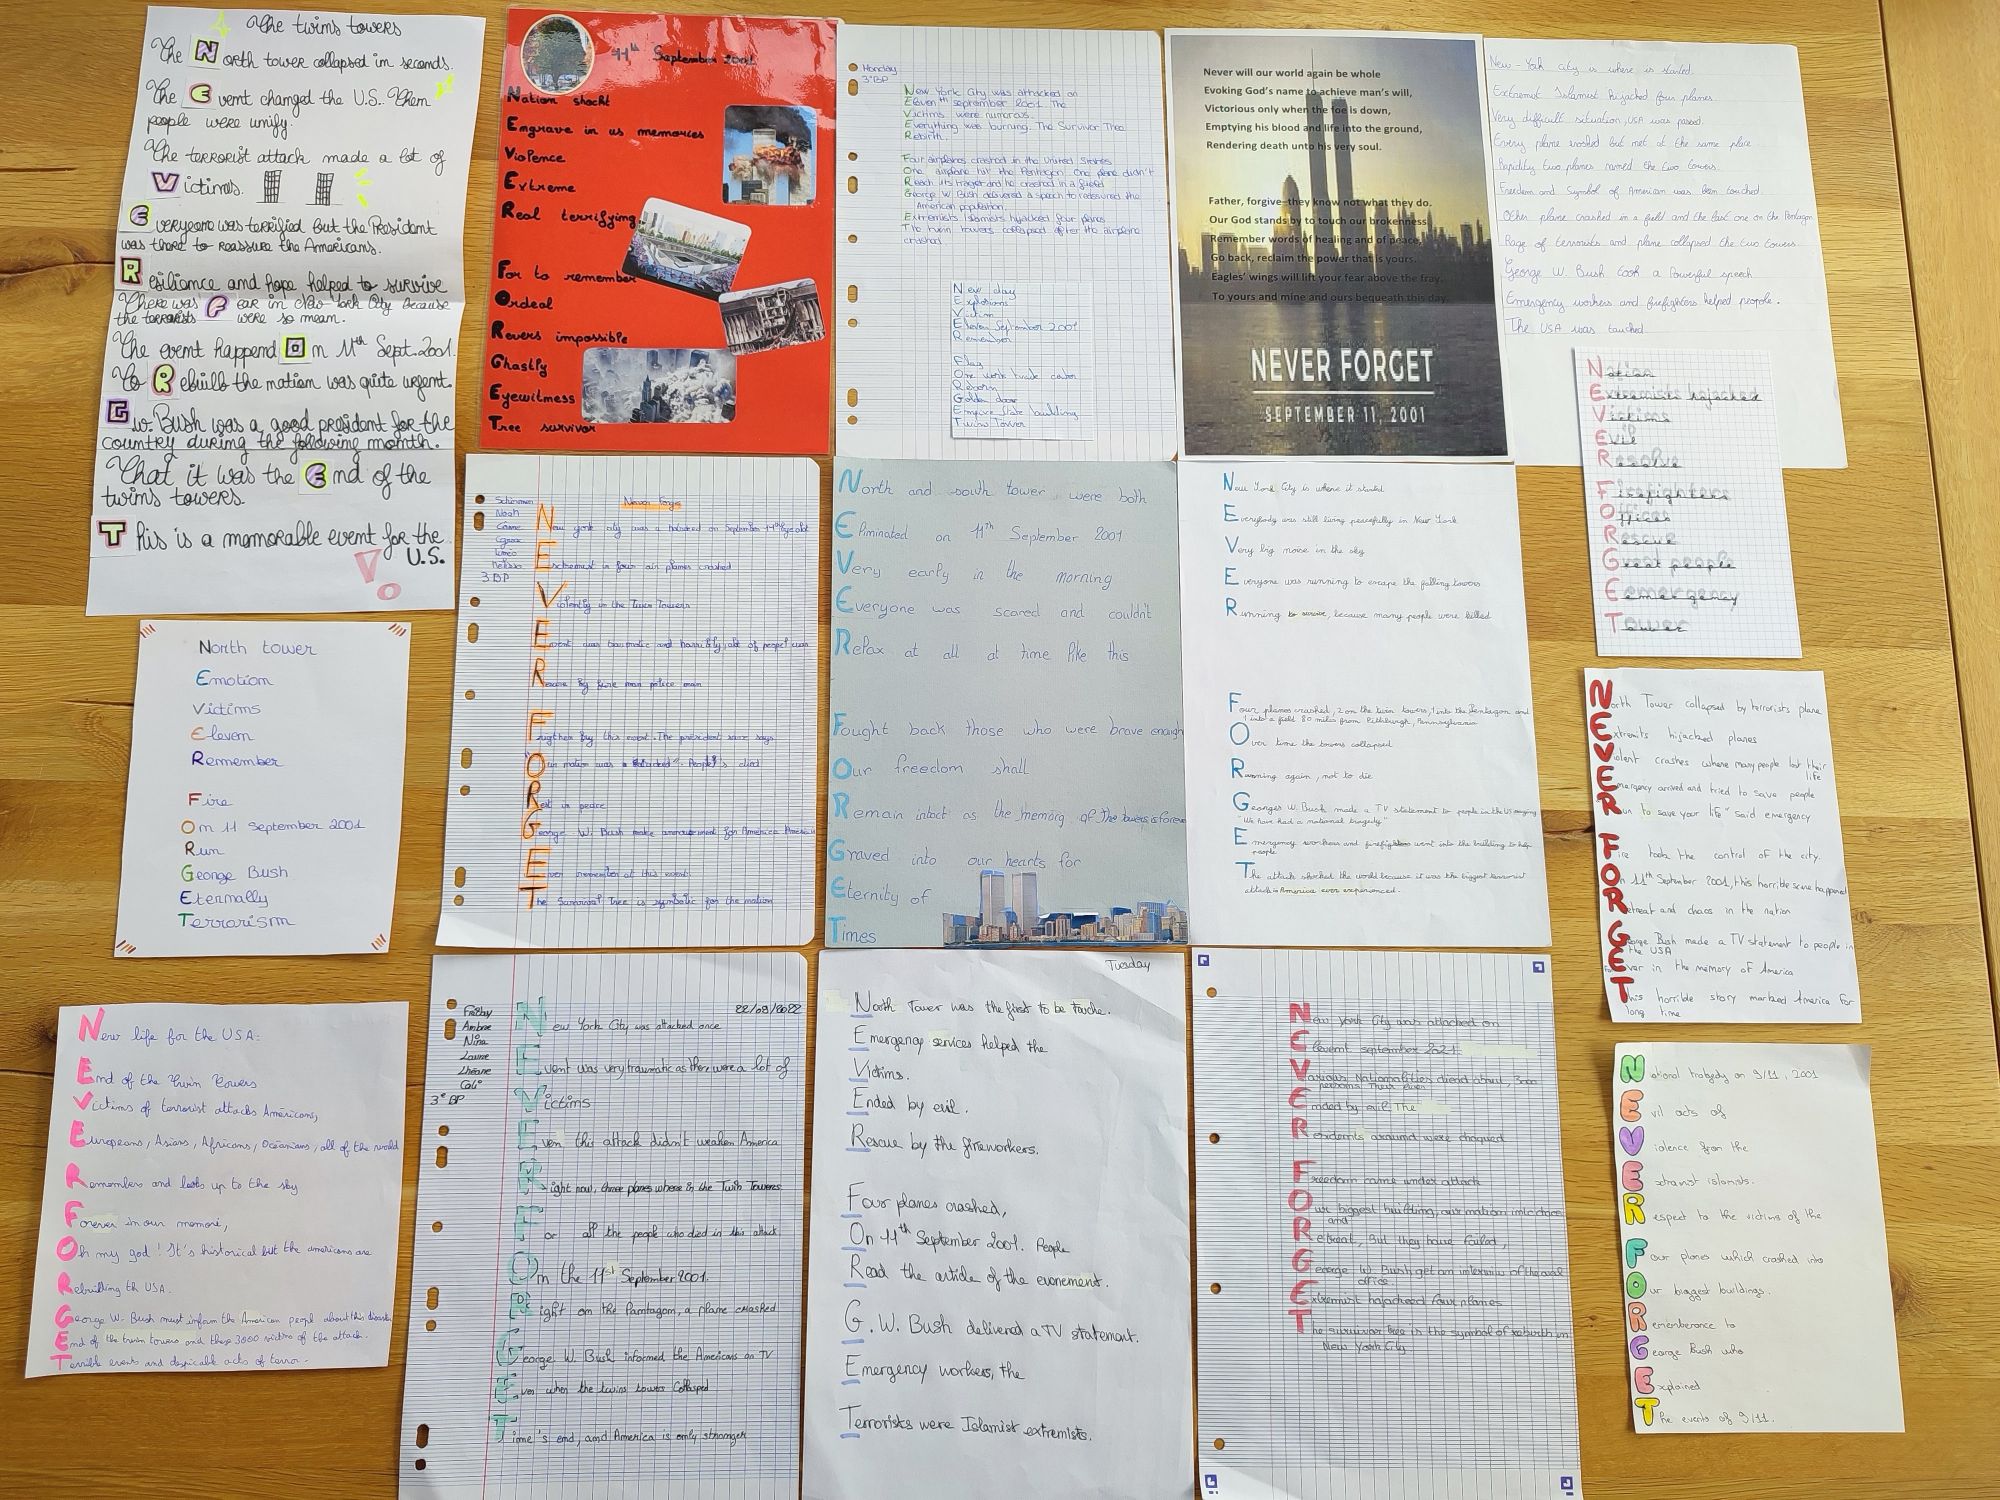 The twins towers
The North tower collapsed in seconds.
The Event changed the U.S.. Them
people were unify.
The terrorist attack made a lot of
Victimes.
Everyeans was terrified but the President
was there to reassure the Americans.
Resiliance and hope helped to survive
There was Fear in New-York City because
the terrorists were so mean.
The event happend On 11th Sept. 2001.
To Rebuilt the nation was quite urgent.
G.W. Bush was a good president for the
country during the following month.
That it was the End of the
twins towers.
This is a memorable event for the
U.S.
11th September 2001
Nation shockt
Engrave in us memories
Violence
Extreme
Real terrifying...
For to remember
Ordeal
Revers impossible
Ghastly
Eyewitness
Tree survivor
Monday
3°BP
New York City was attacked on
Eleventh september 2001. The
Victims were numerous.
Everything was burning. The Survivor Tree
Rebirth.
Four airplanes crashed in the United States
One airplane hit the Pentagon. One plane didn't
Reach its traget and he crashed in a field
George W. Bush delivered a speech to reassured the
American population.
Extremists Islamists hijacked four planes
The twin towers collapsed after the airplane
crashed
New day
Explosions
Victim
Eleven September 2001
Remember
Flag
One work trade center
Reborn
Golden door
Empire State building
Twins Tower
Never will our world again be whole
Evoking God's name to achieve man's will,
Victorious only when the foe is down,
Emptying his blood and life into the ground,
Rendering death unto his very soul.
Father, forgive–they know not what they do.
Our God stands by to touch our brokenness
Remember words of healing and of peace,
Go back, reclaim the power that is yours.
Eagles' wings will lift your fear above the fray.
To yours and mine and ours bequeath this day.
NEVER FORGET
SEPTEMBER 11, 2001
New-York city is where is started.
Extremist Islamist hijacked four planes.
Very difficult situation, USA was passed.
Every plane crashed but not at the same place.
Rapidity two planes named the two towers.
Freedom and Symbol of American was been touched.
Other plane crashed in a field and the last one on the Pentagon
Rage of terrorists and plane collapsed the two towers.
George W. Bush took a Powerful speech
Emergency workers and firefighters helped people.
The USA was touched
Nation
Extremists hijacked
Victims
Evil
Resolve
Firefighters
Offices
Rescue
Great people
Emergency
Tower
Never Forget
Noah
3 BP
New york city was a hijacked on September 11th
Extremist in four air planes crashed
Violently in the Twin Towers
Event was traumatic and horribly, lot of people
Rescue by fire man police man
The président
Rest in peace
George W. Bush make announcement for America
Ever remember at this event
The Survivor Tree is symbolic for the nation
North and south tower were both
Eliminated on 11th September 2001
Very early in the morning
Everyone was scared and couldn't
Relax at all at time like this
Fought back those who were brave enough
Our freedom shall
Remain intact as the memory of the towers is forever
Graved into our hearts for
Eternity of
Times
New York City is where it started
Everybody was still living peacefully in New York
Very big noise in the sky
Everyone was running to escape the falling towers
Running to survive, because many people were killed
Four planes crashed, 2 on the twin towers, 1 into the Pentagon and
1 into a field 80 miles from Pittsburgh, Pennsylvania
Over time the towers collapsed
Running again, not to die
Georges W. Bush made a TV statement to people in the US saying
"We have had a national tragedy"
Emergency workers and firefighters went into the building to help
people
The attack shocked the world because it was the biggest terrorist
attack in America ever experienced.
North tower
Emotion
Victims
Eleven
Remember
Fire
On 11 September 2001
Run
George Bush
Eternally
Terrorism
North Tower collapsed by terrorists plane
Extremits hijacked planes
Violent crashes where many people lost their
life
Emergency arrived and tried to save people
Run to save your life" said emergency
Fire took the control of the city.
On 11th September 2001, this horrible scene happened
Retreat and chaos in the nation
George Bush made a TV statement to people in
the USA
Forever in the memory of America
This horrible story marked America for
long time
New life for the USA:
End of the Twin Towers
Victims of terrorist attacks Américans,
Européans, Asians, Africans, Océanians, all of the world
Remembers and looks up to the sky
Forever in our memori,
Oh my god! It's historical but the americans are
Rebuilting th USA.
George W. Bush must inform the American people about this disaster
End of the twin towers and these 3000 victims of the attack.
Terrible events and despicable acts of terror.
Friday
Ambre
Nina
Laurie
3e BP
22/09/2022
New York City was attacked once
Event was very traumatic as there were a lot of
Victims
Even this attack didn't weaken America
Right now, three planes where in the Twin Towers
For all the people who died in this attack
On the 11st September 2001.
Right on the Pantagom, a plane crashed
George W. Bush informed the Americans on TV
Ever when the twins towers Collapsed
Time's end, and America is only stronger
Tuesday
North Tower was the first to be touche.
Emergency services helped the
Victims.
Ended by evil.
Rescue by the fireworkers.
Four planes crashed,
On 11th September 2001. People
Read the article of the evenement.
G.W. Bush delivered a TV statement.
Emergency workers, the
Terrorists were Islamist extremists.
New York City was attacked on
Elevent september 2021
Various Nationalities diend about, 3000
persons their even
Ended by evil. The
Residents around were choqued
Freedom came under attack
Our biggest building, our nation into chaos
and
Retreat, But they have failed,
George W. Bush get an interview of the oval
office.
Extremist hajacheed four planes
The survivor tree is the symbol of rebirth in
New York City
National tragedy on 9/11, 2001
Evil acts of
Violence from the
Extranist islamists.
Respect to the victims of the
Four planes which crashed into
Our biggest buildings.
Rememberance to
George Bush who
Explained
The events of 9/11.